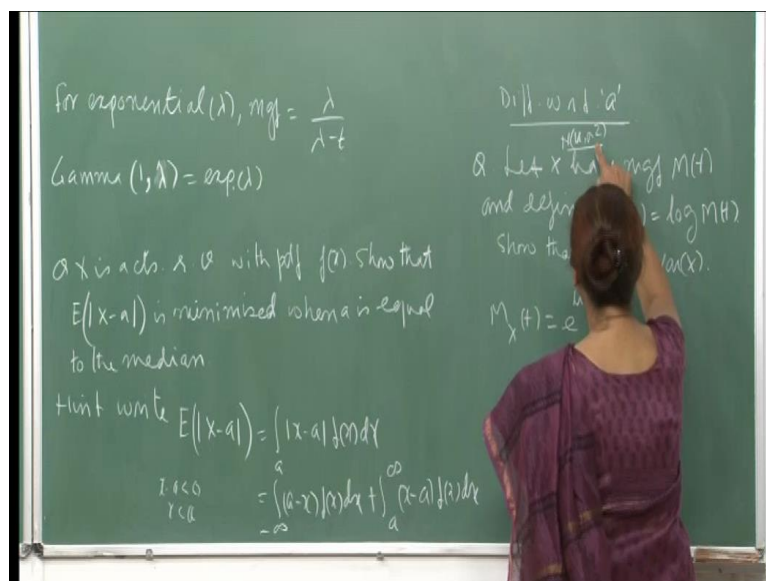 For exponential(λ), mgf = λ / (λ-t)
Gamma (1, λ) = exp(λ)
Q X is a cts. r v with pdf f(x). Show that
E(|X-a|) is minimised when a is equal
to the median
Hint write E(|X-a|) = ∫ |x-a| f(x) dx
X-a<0
X<a
= ∫_{-∞}^{a} (a-x) f(x) dx + ∫_{a}^{∞} (x-a) f(x) dx
Diff. w r t. 'a'
N(μ, σ²)
Q Let X mgf M(t)
and = log M(t).
Show (X).
M_X(t) = e